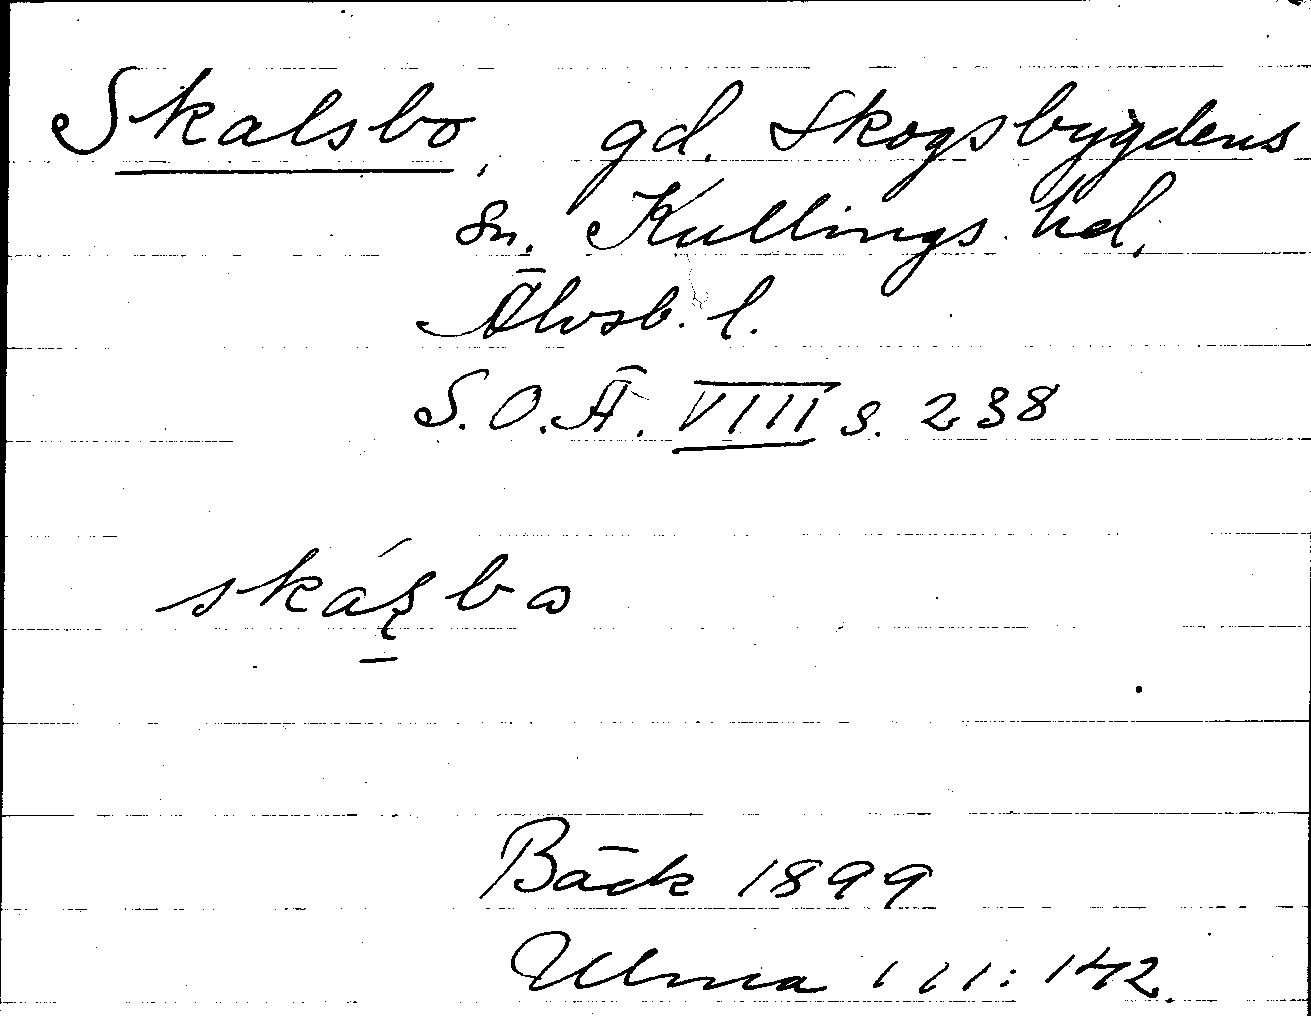 Skalsbo, gd. Skogsbygdens
sn. Kullings hd,
Älvsb. l.
S.O.Ä. VIII s. 238
Bäck 1899
Ulma 111:142.